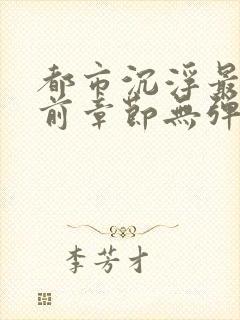 都市沉浮最
前章節無彈
李芳才